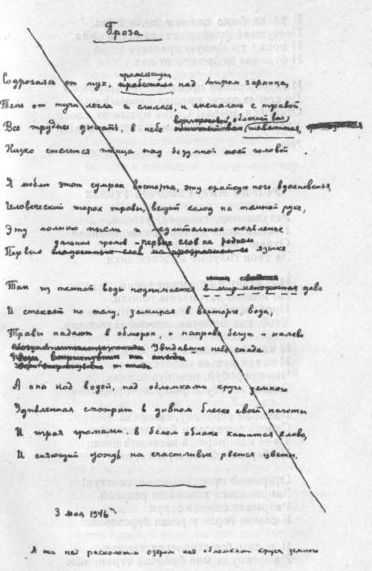 Гроза
Содрогаясь от мук, пробежала над миром зарница,
Тень от тучи легла и слилась, и смешалась с травой.
Все труднее дышать, в небе облачный вал шевелится,
Низко стелется птица над безумной моей головой.
Я люблю этот сумрак восторга, эту краткую ночь вдохновенья,
Человеческий шорох травы, вещий холод на темной руке,
Эту молнию мысли и медлительное появленье
Первых дальних громов – первых слов на родном языке
Так из темной воды появляется в мир дева
И стекает по телу, замирая в восторге, вода,
Травы падают в обморок, и направо бегут и налево
Увидавшие небо стада
А она над водой, над обломками круга земного
Удивленная смотрит в дивном блеске своей наготы
И играя громами, в белом облаке катится слово,
И сияющий дождь на счастливые рвется цветы.
3 мая 1946 г.
А та над расколотым озером над обломками круга земного